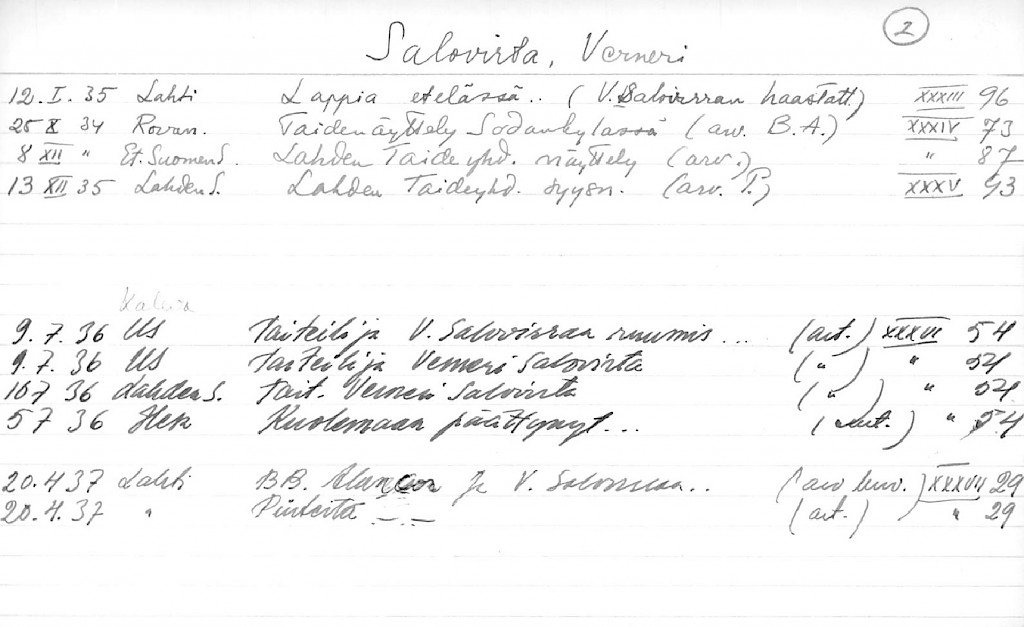 2
Salovirta, Verneri
12.I.35 Lahti Lappia etelässä.. (V. Salovirran haastatt.) XXXIII 96
25 X 34 Rovan. Taidenäyttely Sodankylässä (arv. B.A.) XXXIV 73
8 XII " Et. Suomen S. Lahden Taideyhd. näyttely (arv.) " 87
13 XII 35 Lahden S. Lahden Taideyhd. syysn. (arv. P.) XXXV 93
Kaleva
9.7.36 US Taiteilija V. Salovirran ruumis... (art.) XXXVI 54
9.7.36 US Taiteilija Verneri Salovirta (") " 54
10 7 36 Lahden S. Tait. Verneri Salovirta (") " 54
5 7 36 Hek Kuolemaan päättynyt... (art.) " 54
20.4 37 Lahti B.B. ja V. Salovirran.. (arv. kuv.) XXXVII 29
20.4.37 " Piirteitä (art.) " 29